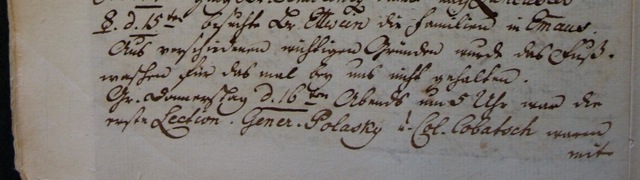 ☿. d. 15ten besuchte Br. Ettwein die Familien in Emaus.
Aus verschiedenen wichtigen Gründen wurde das Fuß-
waschen für das mal bey uns nicht gehalten.
Gr. Donnerstag d. 16ten Abends um 5 Uhr war die
erste Lection. Gener. Polasky u. Col. Cobatsch waren
mit